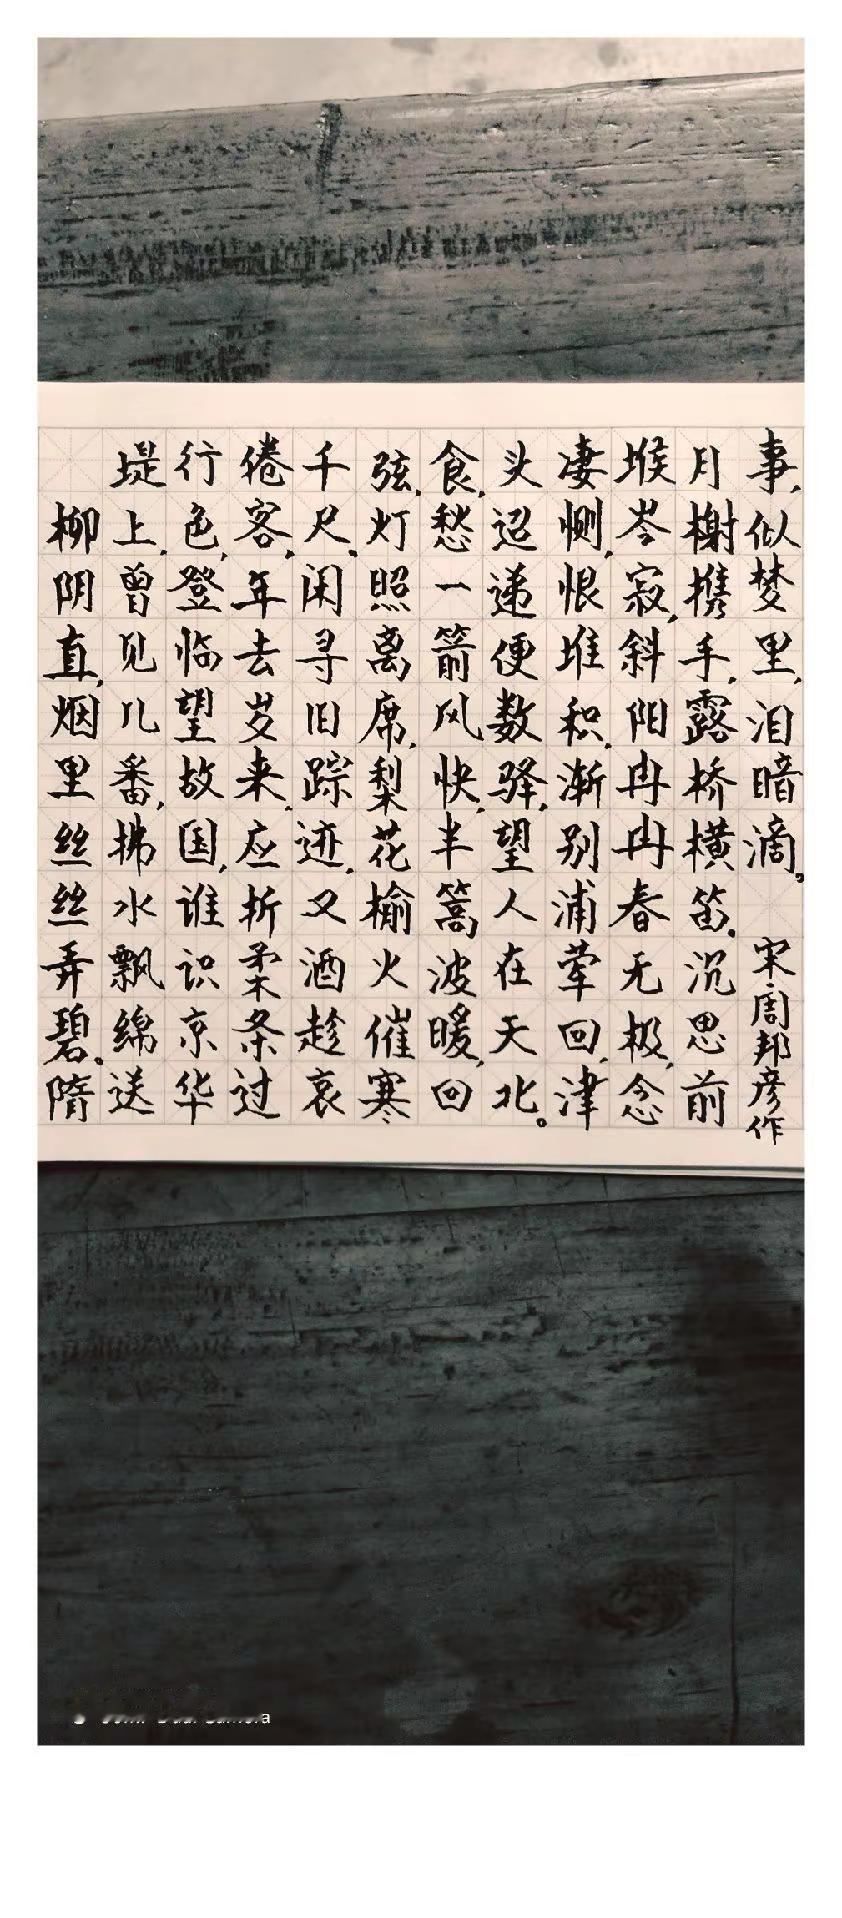 柳阴直,烟里丝丝弄碧。隋
堤上,曾见几番,拂水飘绵送
行色,登临望故国,谁识京华
倦客,年去岁来.应折柔条过
千尺。闲寻旧踪迹.又酒趁哀
弦,灯照离席.梨花榆火催寒
食,愁一箭风快,半篙波暖,回
头迢递便数驿,望人在天北。
凄恻,恨堆积.渐别浦萦回,津
堠岑寂,斜阳冉冉春无极,念
月榭携手,露桥横笛.沉思前
事,似梦里,泪暗滴。宋·周邦彦作